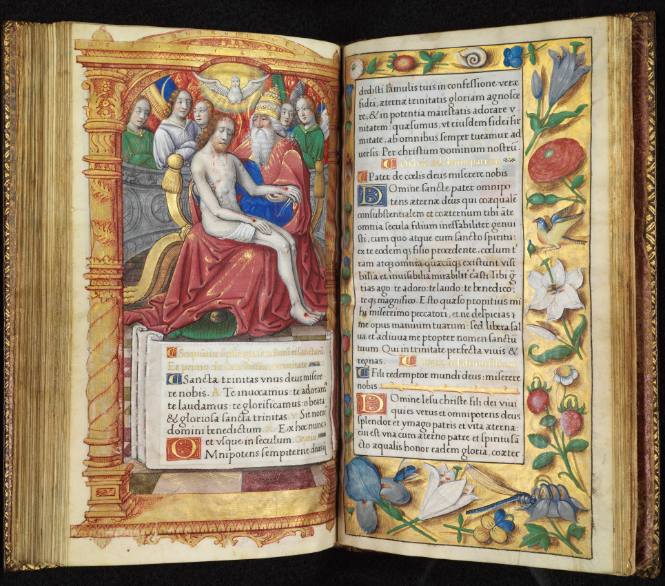 Sancta trinitas vnus deus misere
re nobis. Te inuocamus: te adoram⁹
te laudamus: te glorificamus: o beata
& gloriosa sancta trinitas Sit nomē
domini benedictum Ex hoc nunc
et vsque in seculum
Omnipotens sempiterne deus
dedisti famulis tuis in confessione veræ
fidei, æternæ trinitatis gloriam agnosce
re, & in potentia maiestatis adorare v
nitatem: quæsumus, vt eiusdem fidei fir
mitate, ab omnibus semper tueamur ad
uersis. Per christum dominum nostrū
Pater de cœlis deus miserere nobis
Domine sancte pater omnipo
tens æterne deus qui coæqualē
consubstantialem et coæternum tibi āte
omnia secula filium ineffabiliter genui
sti, cum quo atque cum sancto spiritu
ex te eodem q̃ filio procedente, cœlum t
am atq̃ omnia quæcūq̃ existunt visi
bilia et inuisibilia mirabilit' c̃asti, tibi g̃
tias ago te adoro: te laudo: te benedico:
te q̃ magnifico. Esto quæso propitius mi
hi miserrimo peccatori, et ne despicias
me opus manuum tuarum: sed libera sal
ua et adiuua me propter nomen sanctū
tuum. Qui in trinitate perfecta viuis &
regnas.
Fili redemptor mundi deus: miserere
nobis
Domine Iesu christe fili dei viui
qui es verus et omnipotens deus
splendor et ymago patris et vita æterna:
cui est vna cum æterno patre et spiritu sā
cto æqualis honor eadem gloria, coæter